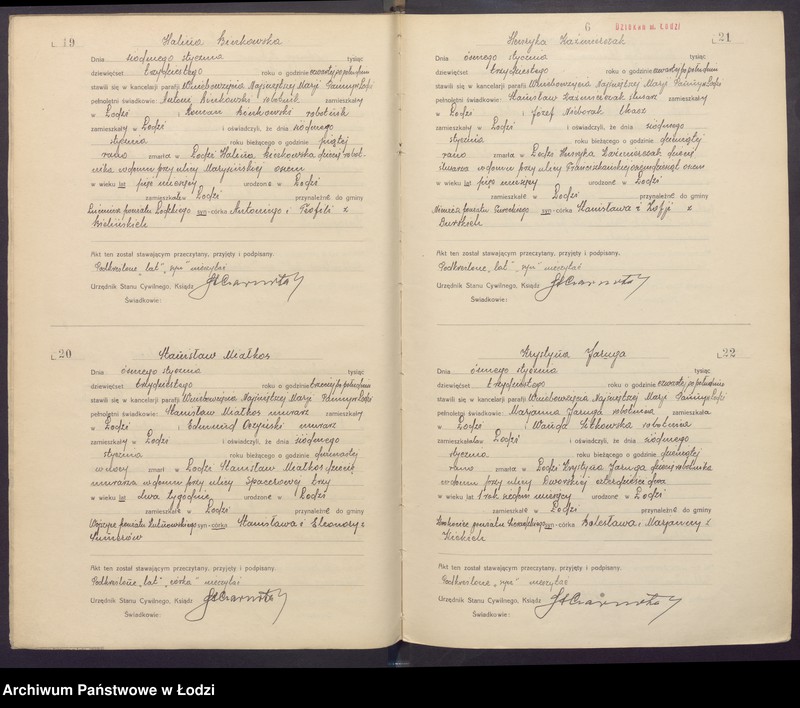 L 19
Halina Bieńkowska
Dnia siódmego stycznia tysiąc
dziewięćset trzydziestego roku o godzinie czwartej po południu
stawili się w kancelarji parafji Wniebowzięcia Najświętszej Marji Panny w Łodzi
pełnoletni świadkowie: Antoni Bieńkowski robotnik zamieszkały
w Łodzi i Roman Bieńkowski robotnik
zamieszkały w Łodzi i oświadczyli, że dnia siódmego
stycznia roku bieżącego o godzinie piątej
rano zmarła w Łodzi Halina Bieńkowska dziecię robot-
nika w domu przy ulicy Marysińskiej osiem
w wieku lat pięć miesięcy urodzone w Łodzi
zamieszkałe w Łodzi przynależne do gminy
powiatu Łódzkiego syn-córka Antoniego i Teofili z
Bielińskich
Akt ten został stawającym przeczytany, przyjęty i podpisany.
Podkreślone „lat”, „syn” nieczytać
Urzędnik Stanu Cywilnego, Ksiądz
Świadkowie:
L 20
Stanisław Miałkos
Dnia ósmego stycznia tysiąc
dziewięćset trzydziestego roku o godzinie trzeciej po południu
stawili się w kancelarji parafji Wniebowzięcia Najświętszej Marji Panny w Łodzi
pełnoletni świadkowie: Stanisław Miałkos murarz zamieszkały
w Łodzi i Edmund murarz
zamieszkały w Łodzi i oświadczyli, że dnia siódmego
stycznia roku bieżącego o godzinie dwunastej
w nocy zmarł w Łodzi Stanisław Miałkos dziecię
murarza w domu przy ulicy Spacerowej trzy
w wieku lat dwa tygodnie urodzone w Łodzi
zamieszkałe w Łodzi przynależne do gminy
powiatu syn-córka Stanisława i Eleonory z
Akt ten został stawającym przeczytany, przyjęty i podpisany.
Podkreślone „lat”, „córka” nieczytać
Urzędnik Stanu Cywilnego, Ksiądz
Świadkowie:
6
w m. ŁODZI
L 21
Henryka Kaźmierczak
Dnia ósmego stycznia tysiąc
dziewięćset trzydziestego roku o godzinie czwartej po południu
stawili się w kancelarji parafji Wniebowzięcia Najświętszej Marji Panny w Łodzi
pełnoletni świadkowie: Stanisław Kaźmierczak ślusarz zamieszkały
w Łodzi i Józef tkacz
zamieszkały w Łodzi i oświadczyli, że dnia siódmego
stycznia roku bieżącego o godzinie dziewiątej
rano zmarła w Łodzi Henryka Kaźmierczak dziecię
ślusarza w domu przy ulicy Franciszkańskiej osiemdziesiąt osiem
w wieku lat pięć miesięcy urodzone w Łodzi
zamieszkałe w Łodzi przynależne do gminy
powiatu Tureckiego syn-córka Stanisława i Zofji z
Akt ten został stawającym przeczytany, przyjęty i podpisany.
Podkreślone „lat”, „syn” nieczytać
Urzędnik Stanu Cywilnego, Ksiądz
Świadkowie:
L 22
Krystyna Jaruga
Dnia ósmego stycznia tysiąc
dziewięćset trzydziestego roku o godzinie czwartej po południu
stawili się w kancelarji parafji Wniebowzięcia Najświętszej Marji Panny w Łodzi
pełnoletni świadkowie: Marjanna Jaruga robotnica zamieszkała
w Łodzi i Wanda robotnica
zamieszkała w Łodzi i oświadczyli, że dnia siódmego
stycznia roku bieżącego o godzinie dziewiątej
rano zmarła w Łodzi Krystyna Jaruga dziecię robotnika
w domu przy ulicy Dworskiej czterdzieści dwa
w wieku lat 1 rok siedem miesięcy urodzone w Łodzi
zamieszkałe w Łodzi przynależne do gminy
powiatu syn-córka Bolesława i Marjanny z
Akt ten został stawającym przeczytany, przyjęty i podpisany.
Podkreślone „syn” nieczytać
Urzędnik Stanu Cywilnego, Ksiądz
Świadkowie:
Archiwum Państwowe w Łodzi